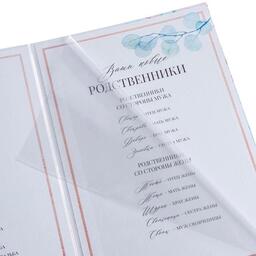 Ваши новые
РОДСТВЕННИКИ
РОДСТВЕННИКИ
СО СТОРОНЫ МУЖА
Свёкор - ОТЕЦ МУЖА
Свекровь - МАТЬ МУЖА
Деверь - БРАТ МУЖА
Золовка - СЕСТРА МУЖА
РОДСТВЕННИКИ
СО СТОРОНЫ ЖЕНЫ
Тесть - ОТЕЦ ЖЕНЫ
Тёща - МАТЬ ЖЕНЫ
Шурин - БРАТ ЖЕНЫ
Свояченица - СЕСТРА ЖЕНЫ
Свояк - МУЖ СВОЯЧЕНИЦЫ